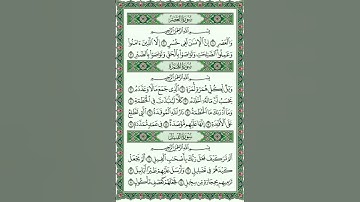 سورة العصر
بسم الله الرحمن الرحيم
والعصر ۝ إن الإنسن لفى خسر ۝ إلا الذين ءامنوا
وعملوا الصلحت وتواصوا بالحق وتواصوا بالصبر ۝
سورة الهمزة
بسم الله الرحمن الرحيم
ويل لكل همزة لمزة ۝ الذى جمع مالا وعدده ۝
يحسب أن ماله أخلده ۝ كلا لينبذن فى الحطمة ۝
وما أدرىك ما الحطمة ۝ نار الله الموقدة ۝ التى تطلع
على الأفدة ۝ إنها عليهم مؤصدة ۝ فى عمد ممددة ۝
سورة الفيل
بسم الله الرحمن الرحيم
ألم تر كيف فعل ربك بأصحب الفيل ۝ ألم يجعل
كيدهم فى تضليل ۝ وأرسل عليهم طيرا أبابيل ۝
ترميهم بحجارة من سجيل ۝ فجعلهم كعصف مأكول ۝